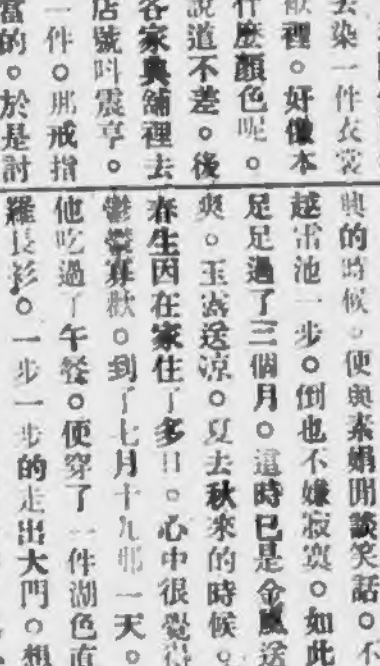 去染一件衣裳
裡。好像本
什麼顏色呢。
說道不差。後
客家典舖裡去
店號叫震亨。
一件。那戒指
當的。於是討
興的時候。便與素娟閒談笑話。不
越雷池一步。倒也不嫌寂寞。如此
足足過了三個月。這時已是金風送
爽。玉露送涼。夏去秋來的時候。
春生因在家住了多日。心中很覺得
鬱鬱寡歡。到了七月十九那一天。
他吃過了午餐。便穿了一件湖色直
羅長衫。一步一步的走出大門。想